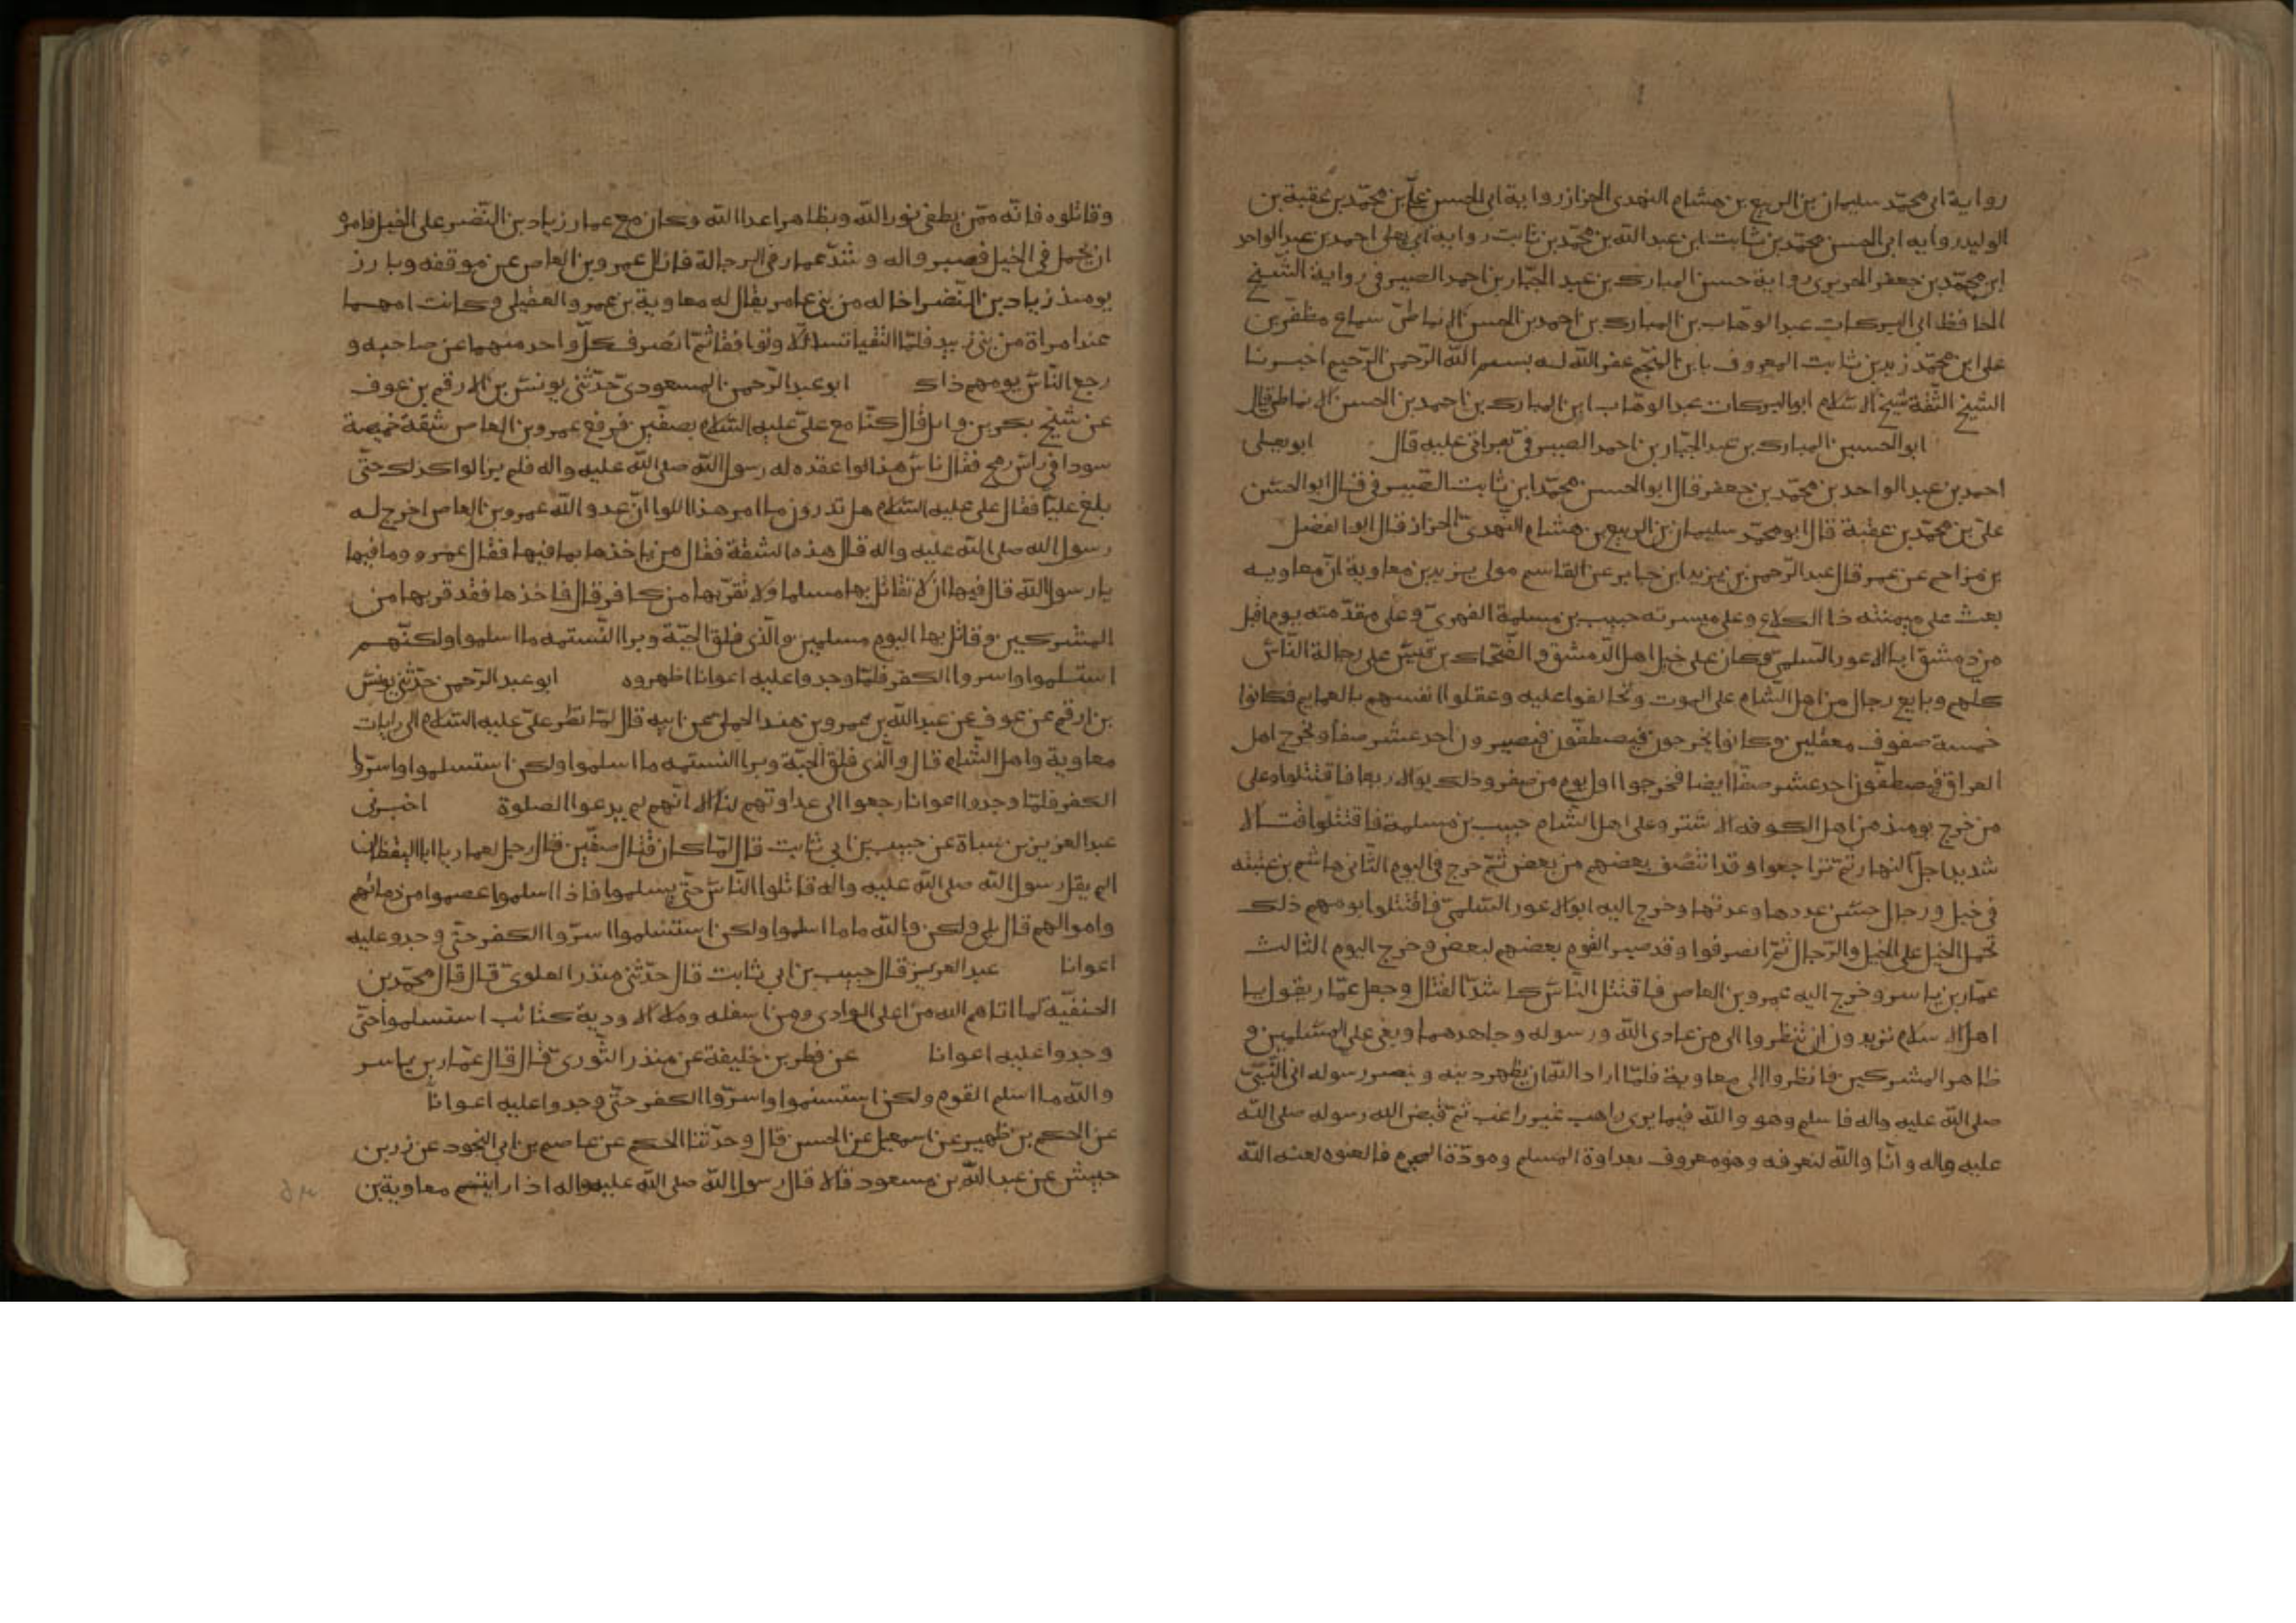 رواية ابى محمّد سليمان بن الربيع بن هشام النهدى الخزاز رواية ابى الحسن علىّ بن محمّد بن عقبة بن
الوليد روايه ابى الحسن محمّد بن ثابت ابن عبد الله بن محمّد بن ثابت روايه ابى يعلى احمد بن عبد الواحد
ابن محمّد بن جعفر الحريرى رواية حسن المبارك بن عبد الجبّار بن احمد الصيرفى رواية الشيخ
الحافظ ابى البركات عبد الوهّاب بن المبارك بن احمد بن الحسن الانماطىّ سماع مظفّر بن
على ابن محمّد زيد بن ثابت المعروف بابن المنجّم غفر الله لـه بسم الله الرّحمن الرّحيم اخبـرنـا
الشيخ الثقة شيخ الاسلام ابو البركات عبد الوهّاب ابن المبارك بن احمد بن الحسن الانماطى قال
ابو الحسين المبارك بن عبد الجبّار بن احمد الصيرفى بقراتى عليه قال ابو يعلى
احمد بن عبد الواحد بن محمّد بن جعفر قال ابو الحسن محمّد ابن ثابت الصّيرفى قال ابو الحسن
علىّ بن محمّد بن عقبة قال ابو محمّد سليمان بن الربيع بن هشام النهدىّ الخزاز قال ابو الفضل
بن مزاحم عن عمر قال عبد الرّحمن بن يزيد ابن جابر عن القاسم مولى يزيد بن معاوية انّ معاويـه
بعث على ميمنته ذا الكلاع وعلى ميسرته حبيب بن مسلمة الفهرىّ وعلى مقدّمته يوم اقبل
من دمشق ابا الاعور السّلمىّ وكان على خيل اهل الدّمشق و الضّحاك بن قيس على رجالة النّاس
كلهم وبايع رجال من اهل الشام على الموت وتحالفوا عليه وعقلوا انفسهم بالعمايم فكانوا
خمسة صفوف معقلين وكانوا يخرجون فيصطفّون فيصيرون احد عشر صفّا ويخرج اهل
العراق فيصطفّون احد عشر صفّا ايضا فخرجوا اول يوم من صفر وذلك يوالاربعا فاقتتلوا وعلى
من خرج يومئذ من اهل الكوفه الاشتر وعلى اهل الشام حبيب بن مسلمة فاقتتلوا قتـالا
شديدا جلّ النهار ثمّ تراجعوا وقد انتصف بعضهم من بعض ثمّ خرج فى اليوم الثّانى هاشم بن عتبه
فى خيل ورجال حسن عددها وعدتها وخرج اليه ابوالاعور السّلمىّ فاقتتلوا يومهم ذلك
تحمل الخيل على الخيل والرّجال ثمّ انصرفوا وقد صبر القوم بعضهم لبعض وخرج اليوم الثالث
عمّار بن ياسر وخرج اليه عمرو بن العاص فاقتتل النّاس كاشدّ القتال وجعل عمّار يقول يـا
اهل الاسلام تريدون ان تنظروا الى من عادى الله ورسوله وجاهدهما وبغى على المسلمين و
ظاهر المشركين فانظروا الى معاوية فلمّا اراد اللّه ان يظهر دينه وينصر رسوله اتى النّبىّ
صلى الله عليه واله فاسلم وهو والله فيما يرى راهب غير راغب ثمّ قبض الله رسوله صلى اللّه
عليه واله وانّا والله لنعرفه وهو معروف بعداوة المسلم ومودّة المجرم فالعنوه لعنه اللّه
وقاتلوه فانّه ممّن يطفى نور اللّه ويظاهر اعدا اللّه وكان مع عمار زياد بن النّضر على الخيل فامره
ان يحمل فى الخيل فصبر واله وشدّ عمار فى الرجالة فازال عمرو بن العاص عن موقفه وبارز
يومئذ زياد بن النّضر اخا له من بنى عامر يقال له معاوية بن عمرو العقيلى وكانت امهمـا
عند امراة من بنى زبيد فلمّا التقيا تسالا وتواقفا ثمّ انصرف كلّ واحد منهما عن صاحبه و
رجع النّاس يومهم ذاك ابو عبد الرّحمن المسعودىّ حدّثنى يونس بن الارقم بن عوف
عن شيخ بكر بن وايل قال كنّا مع علىّ عليه السّلام بصفّين فرفع عمرو بن العاص شقّة خميصة
سودا فى راس رمح فقال ناس هذا لوا عقده له رسول اللّه صلى اللّه عليه واله فلم يزالوا كذلك حتّى
بلغ عليّا فقال على عليه السّلام هل تدرون ما امر هذا اللوا انّ عدو اللّه عمرو بن العاص اخرج لـه
رسول الله صلى اللّه عليه واله قال هذه الشقّة فقال من ياخذها بما فيها فقال عمرو وما فيها
يا رسول اللّه قال فيها ان لا تقاتل بها مسلما ولا تقرّبها من كافر قال فاخذها فقد قربها من
المشركين وقاتل بها اليوم مسلمين والّذى فلق الحبّة وبرا النّسمه ما اسلموا ولكنّهـم
استسلموا واسروا الكفر فلمّا وجدوا عليه اعوانا اظهروه ابو عبد الرّحمن حدّثنى يونس
بن ارقم عن عوف عن عبد اللّه بن عمرو بن هند الجملى عن ابيه قال لمّا نظر علىّ عليه السّلام الى رايات
معاوية واهل الشّام قال والّذى فلق الحبّة وبرا النسمه ما اسلموا ولكن استسلموا واسرّوا
الكفر فلمّا وجدوا اعوانا رجعوا الى عداوتهم لنا الا انّهم لم يدعوا الصلوة اخبـرنى
عبد العزيز بن سياة عن حبيب بن ابى ثابت قال لمّا كان قتال صفّين قال رجل لعمار يا ابا اليقظان
الم يقل رسول اللّه صلى اللّه عليه واله قاتلوا النّاس حتّى يسلموا فاذا اسلموا عصموا من دمائهم
واموالهم قال بلى ولكن واللّه ماما اسلموا ولكن استسلموا اسرّوا الكفر حتّى وجدو عليه
اعوانا عبد العزيز قال حبيب بن ابى ثابت قال حدّثنى منذر العلوىّ قال قال محمّد بن
الحنفيّه لما اتاهم الله من اعلى الوادى ومن اسفله وملا الاودية كتائب استسلموا حتّى
وجدوا عليه اعوانا عن فطر بن خليفة عن منذر الثّورىّ قال قال عمّار بن ياسـر
واللّه ما اسلم القوم ولكن استسلموا واسرّوا الكفر حتّى وجدوا عليه اعواناً
عن الحكم بن ظهير عن اسمعيل عن الحسن قال وحدّثنا الحكم عن عاصم بن ابى النجود عن زر بن
حبيش عن عبد اللّه بن مسعود قالا قال رسول اللّه صلى اللّه عليه واله اذا رايتـم معاوية بن